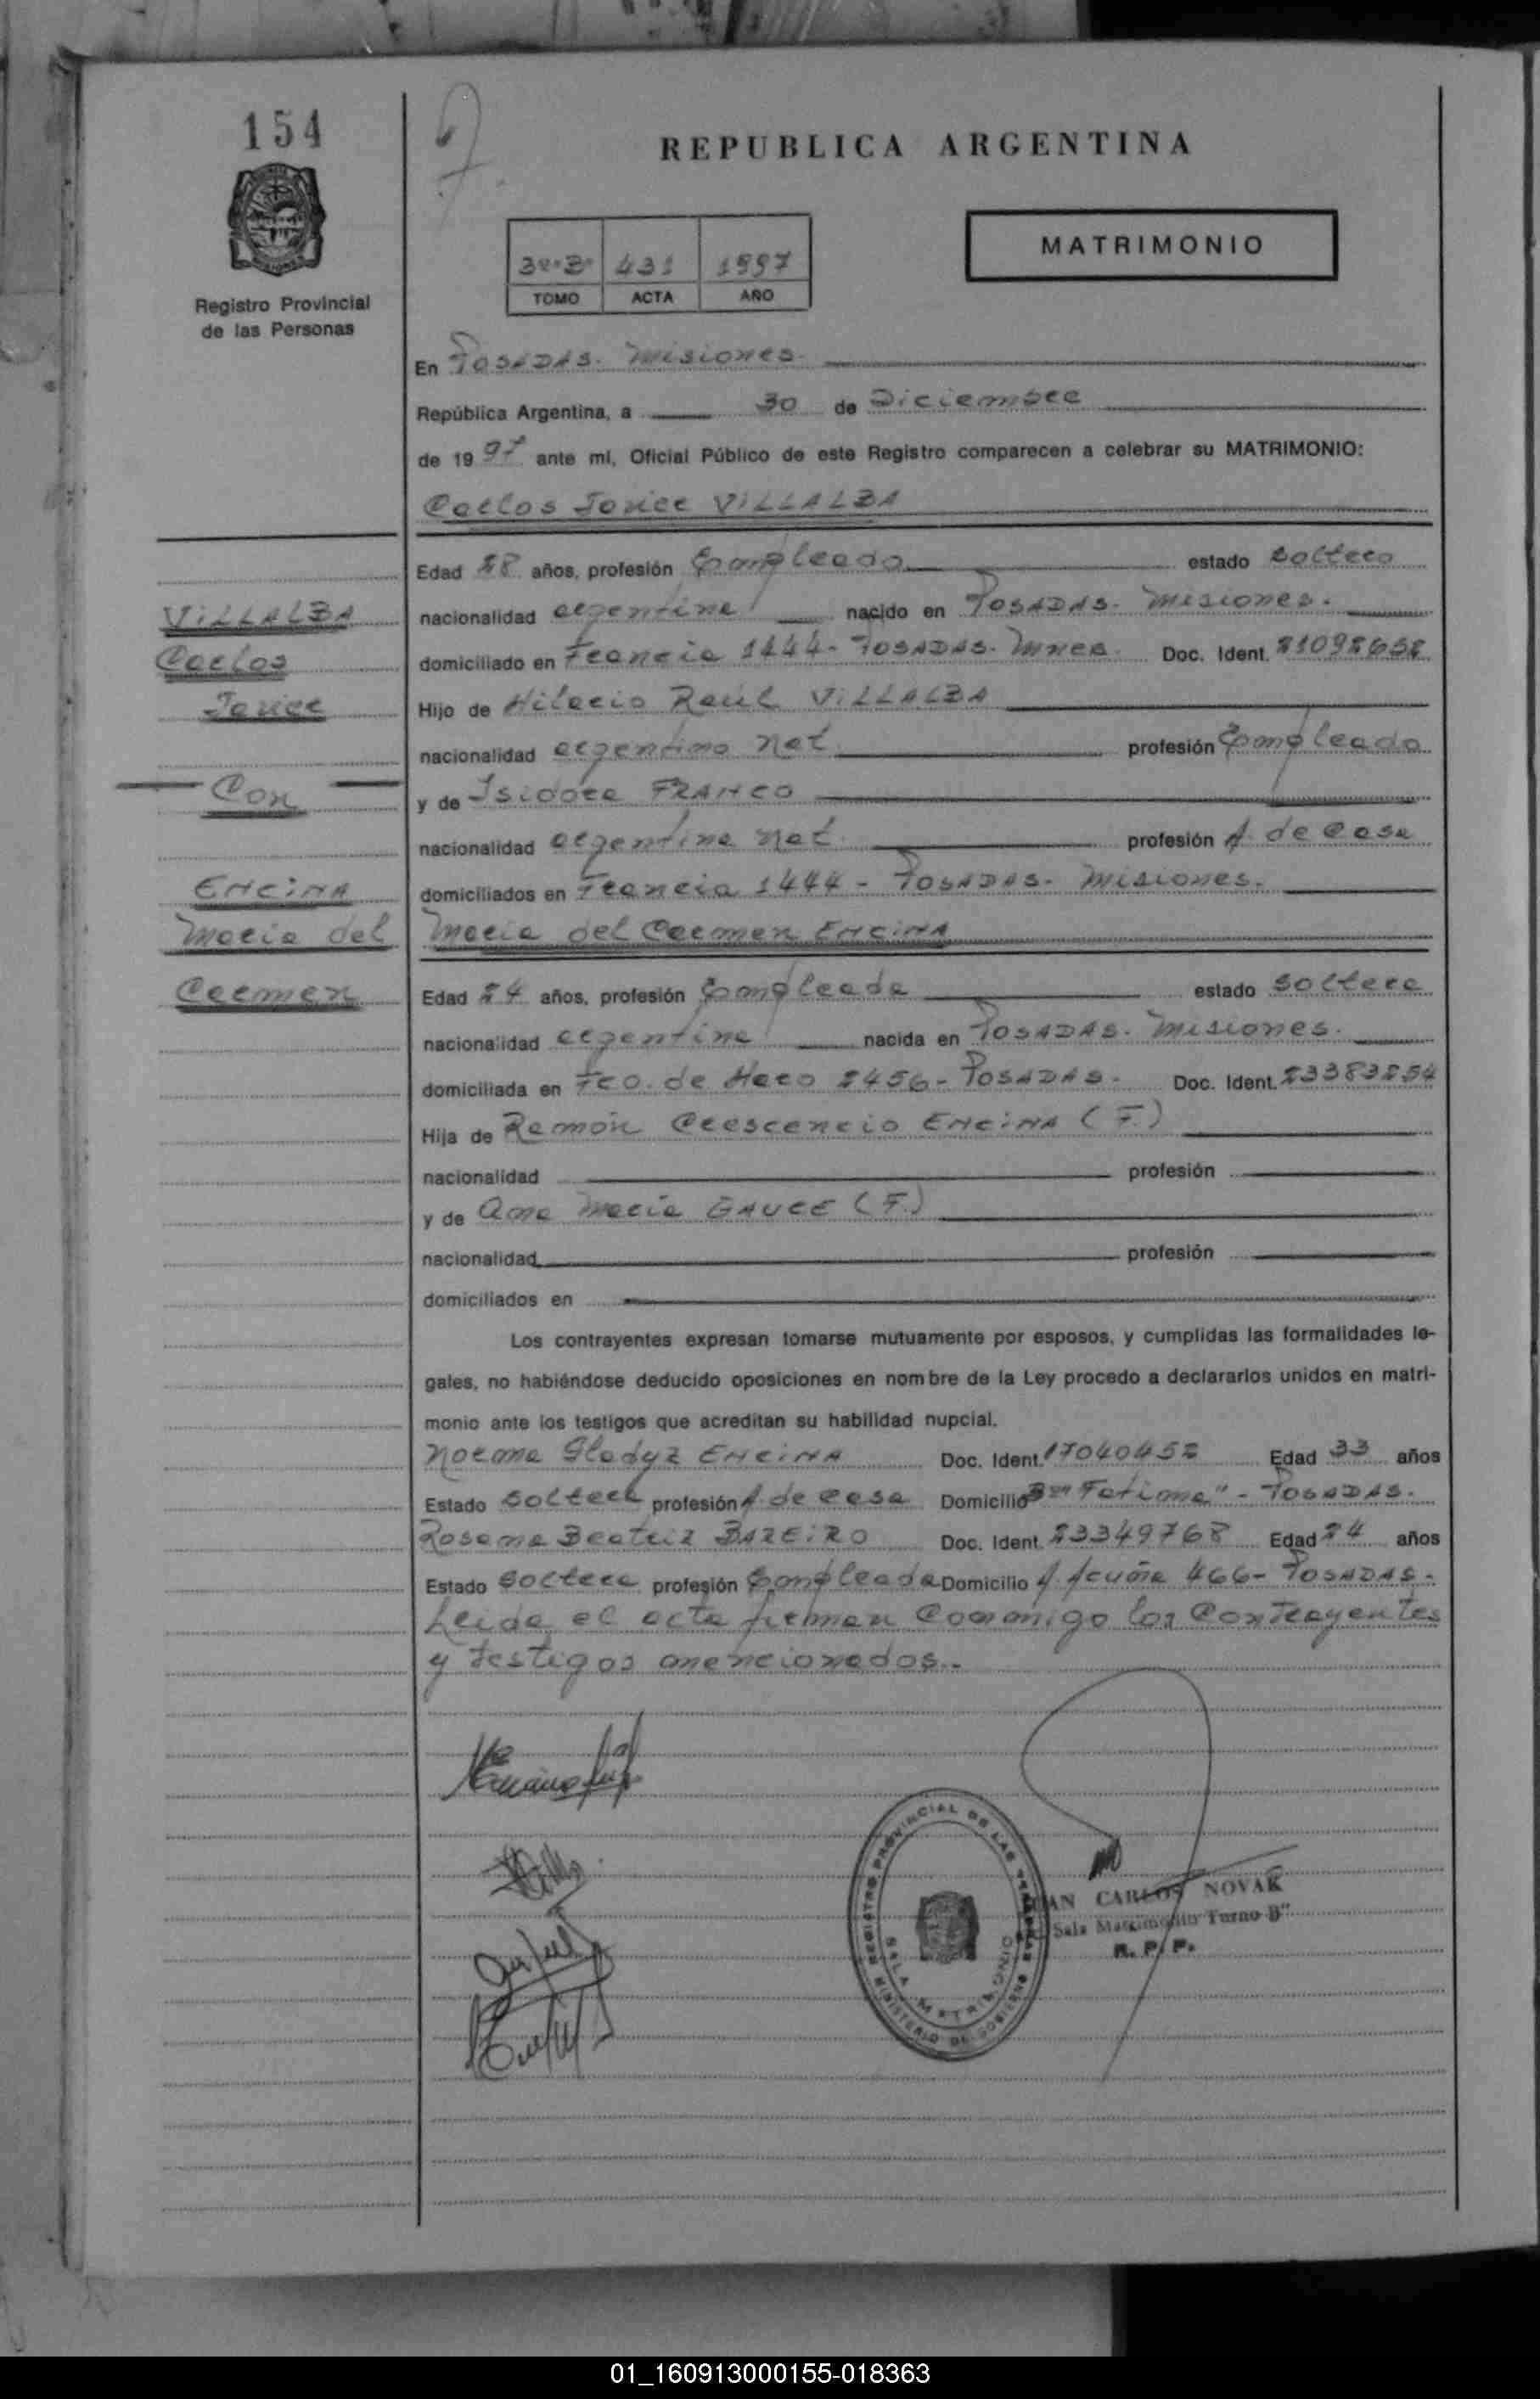 154
REPUBLICA ARGENTINA
MATRIMONIO
431 1997
TOMO ACTA AÑO
Registro Provincial
de las Personas
En POSADAS. Misiones.
República Argentina, a 30 de Diciembre
de 1997 ante mí, Oficial Público de este Registro comparecen a celebrar su MATRIMONIO:
Carlos Javier VILLALBA
Edad 28 años, profesión Empleado estado soltero
VILLALBA
nacionalidad argentina nacido en POSADAS. Misiones.
Carlos
domiciliado en Francia 1444- POSADAS. Mnes. Doc. Ident. 21098658
Javier
Hijo de Hilario Raúl VILLALBA
nacionalidad argentino nat. profesión Empleado
Con
y de Isidora FRANCO
nacionalidad argentina nat. profesión A. de Casa
ENCINA
domiciliados en Francia 1444 - POSADAS. Misiones.
María del
María del Carmen ENCINA
Carmen
Edad 24 años, profesión Empleada estado soltera
nacionalidad argentina nacida en POSADAS. Misiones.
domiciliada en Fco. de Haro 2456- POSADAS. Doc. Ident. 23383254
Hija de Ramón Crescencio ENCINA (F.)
nacionalidad profesión
y de Ana María GAUCE (F.)
nacionalidad profesión
domiciliados en
Los contrayentes expresan tomarse mutuamente por esposos, y cumplidas las formalidades le-
gales, no habiéndose deducido oposiciones en nombre de la Ley procedo a declararlos unidos en matri-
monio ante los testigos que acreditan su habilidad nupcial.
Norma Gladyz ENCINA Doc. Ident. 17040452 Edad 33 años
Estado soltera profesión A. de Casa Domicilio Bº "Fatima" - POSADAS.
Rosana Beatriz BAREIRO Doc. Ident. 23349768 Edad 24 años
Estado soltera profesión Empleada Domicilio A. Acuña 466- POSADAS.
Leida el acta firman Conmigo los Contrayentes
y testigos mencionados.-
REGISTRO PROVINCIAL DE LAS PERSONAS
SALA MATRIMONIO
MINISTERIO DE GOBIERNO
CARLOS NOVAK
Sala Matrimonio Turno B"
R. P. P.
01_160913000155-018363